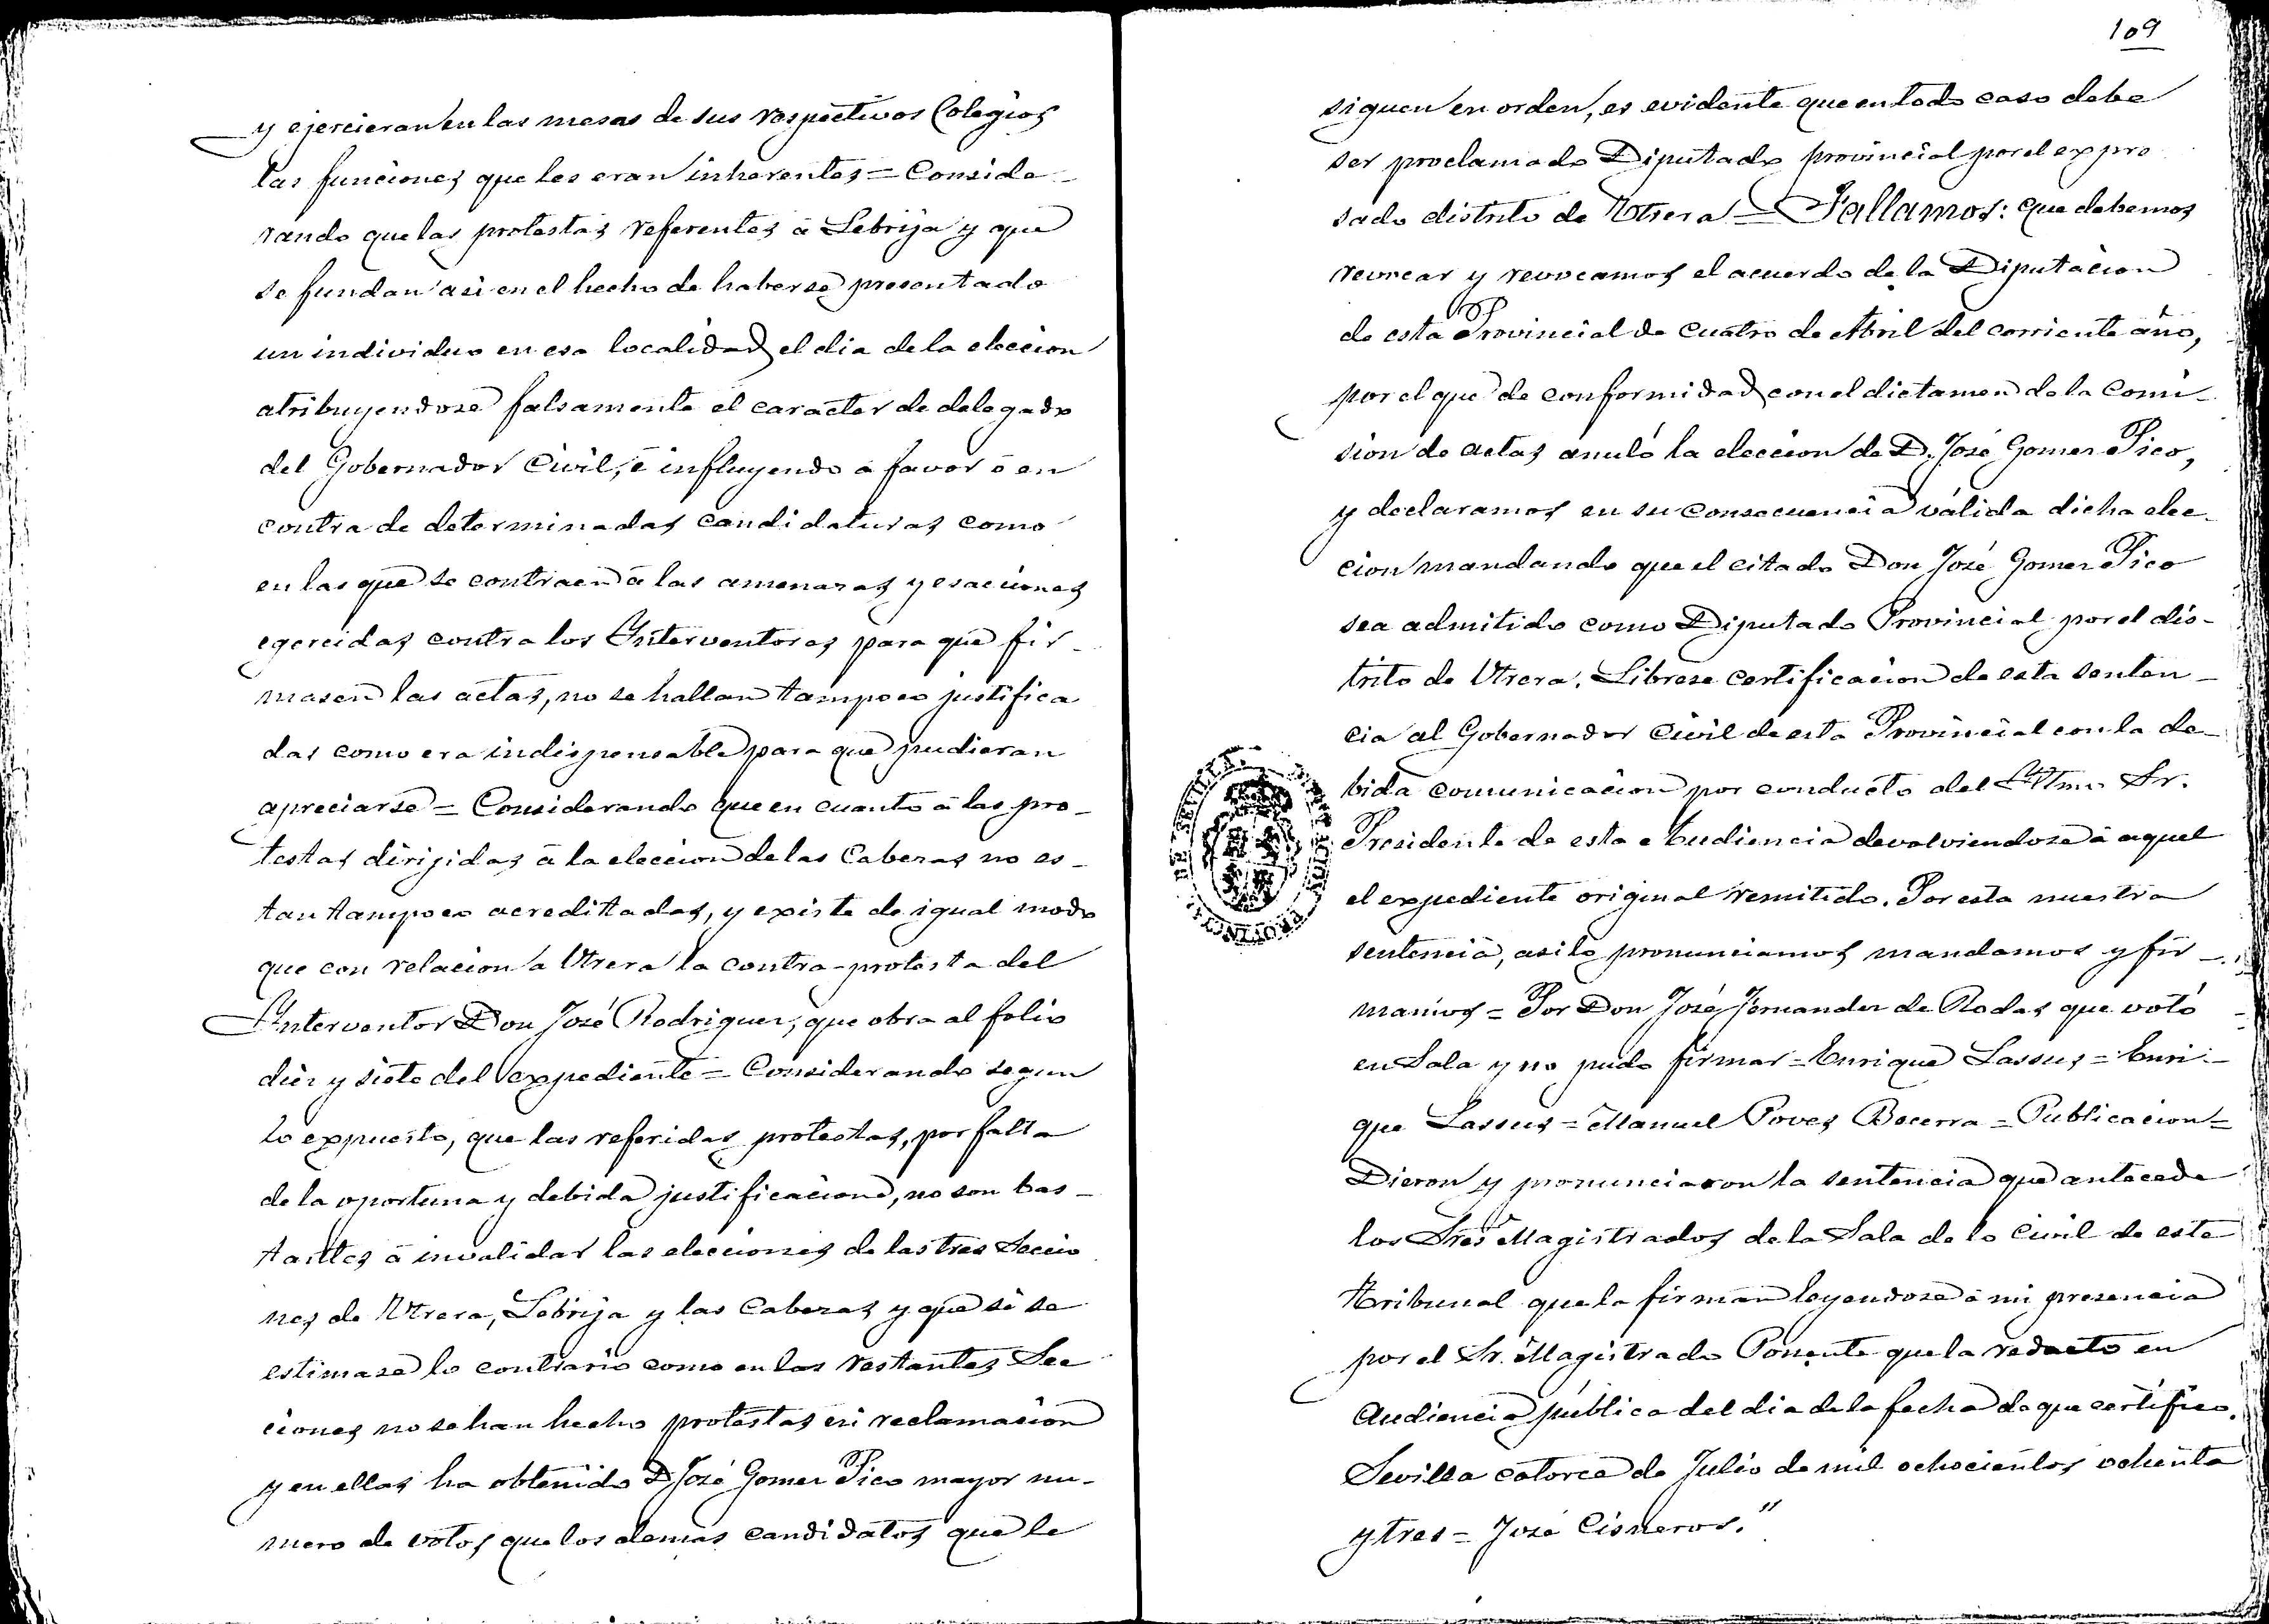 y ejercieran en las mesas de sus respectivos Colegios
las funciones que les eran inherentes = Conside-
rando que las protestas referentes á Lebrija y que
se fundan asi en el hecho de haberse presentado
un individuo en esa localidad el dia de la eleccion
atribuyendose falsamente el caracter de delegado
del Gobernador Civil, é influyendo á favor ó en
contra de determinadas candidaturas como
en las que se contraen á las amenazas y esacciones
egercidas contra los Interventores para que fir-
masen las actas, no se hallan tampoco justifica
das como era indispensable para que pudieran
apreciarse = Considerando que en cuanto á las pro-
testas dirijidas á la eleccion de las Cabezas no es-
tan tampoco acreditadas, y existe de igual modo
que con relacion a Utrera la contra-protesta del
Interventor Don José Rodriguez, que obra al folio
diez y siete del expediente = Considerando segun
lo expuesto, que las referidas protestas, por falta
de la oportuna y debida justificacion, no son bas-
tantes á invalidar las elecciones de las tres Seccio
nes de Utrera, Lebrija y las Cabezas y que si se
estimase lo contrario como en las restantes Sec
ciones no se han hecho protestas ni reclamacion
y en ellas ha obtenido D José Gomez Pico mayor nu-
mero de votos que los demas candidatos que le
109
siguen en orden, es evidente que en todo caso debe
ser proclamado Diputado provincial por el expre
sado distrito de Utrera = Fallamos: que debemos
revocar y revocamos el acuerdo de la Diputacion
de esta Provincial de cuatro de Abril del corriente año,
por el que de conformidad con el dictamen de la Comi-
sion de actas anuló la eleccion de D. José Gomez Pico,
y declaramos en su consecuencia válida dicha elec-
cion mandando que el citado Don José Gomez Pico
sea admitido como Diputado Provincial por el dis-
trito de Utrera. Librese certificacion de esta senten-
cia al Gobernador Civil de esta Provincial con la de-
bida comunicacion por conducto del Iltmo Sr.
Presidente de esta Audiencia devolviendose á aquel
el expediente original remitido. Por esta nuestra
sentencia, asi lo pronunciamos mandamos y fir-
mamos = Por Don José Fernandez de Rodas que votó
en Sala y no pudo firmar = Enrique Lassus = Enri-
que Lassus = Manuel Poves Becerra = Publicacion =
Dieron y pronunciaron la sentencia que antecede
los Sres Magistrados de la Sala de lo Civil de este
tribunal que la firman leyendose á mi presencia
por el Sr. Magistrado Ponente que la redacto en
Audiencia pública del dia de la fecha de que certifico.
Sevilla catorce de Julio de mil ochocientos ochenta
y tres = José Cisneros."
DE SEVILLA.
PROVINCIAL